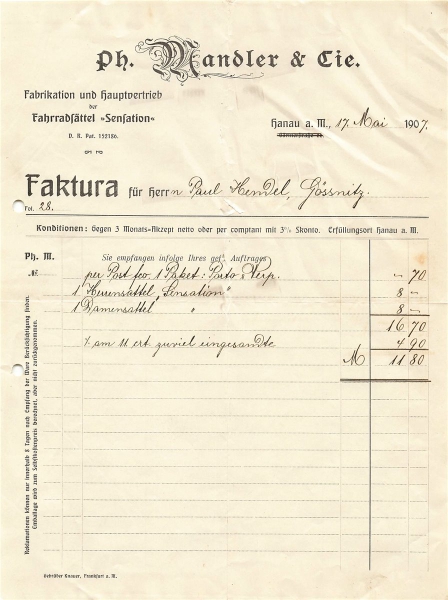 Ph. Mandler & Cie.
Fabrikation und Hauptvertrieb
der
Fahrradsättel »Sensation«
D. R. Pat. 152186.
Hanau a. M., 17. Mai 1907.
Faktura für Herrn Paul Hendel, Gössnitz.
Fol. 28.
Konditionen: Gegen 3 Monats-Akzept netto oder per comptant mit 3% Skonto. Erfüllungsort Hanau a. M.
Ph. M. Sie empfangen infolge Ihres gefl. Auftrages
№ per Post fco. 1 Paket: Porto & Verp. – 70
1 Herrensattel „Sensation" 8 –
1 Damensattel " 8 –
16 70
am 11 ert zuviel eingesandte 4 90
M 11 80
Reklamationen können nur innerhalb 8 Tagen nach Empfang der Ware Berücksichtigung finden.
Emballage wird zum Selbstkostenpreis berechnet, aber nicht zurückgenommen.
Gebrüder Knauer, Frankfurt a. M.